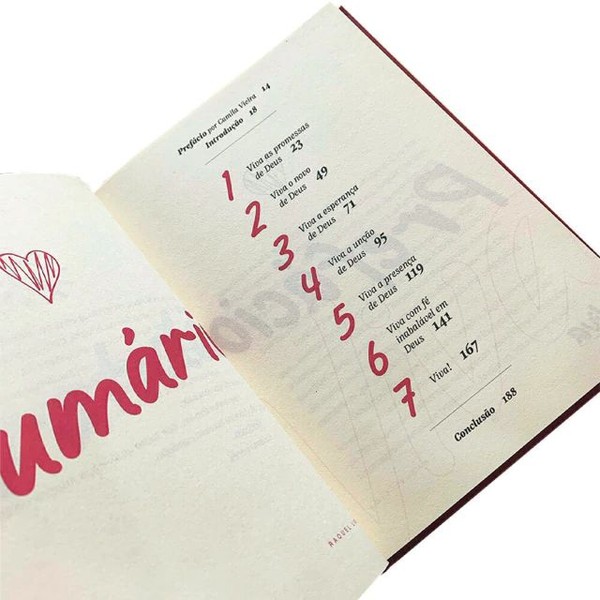 umári
Prefácio por Camila Vieira 14
Introdução 18
1 Viva as promessas
de Deus 23
2 Viva o novo
de Deus 49
3 Viva a esperança
de Deus 71
4 Viva a unção
de Deus 95
5 Viva a presença
de Deus 119
6 Viva com fé
inabalável em
Deus 141
7 Viva! 167
Conclusão 188
RAQUEL